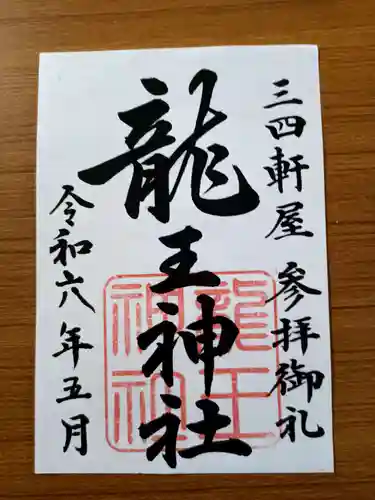 三四軒屋 参拝御礼
龍王神社
龍王
神社
令和六年五月